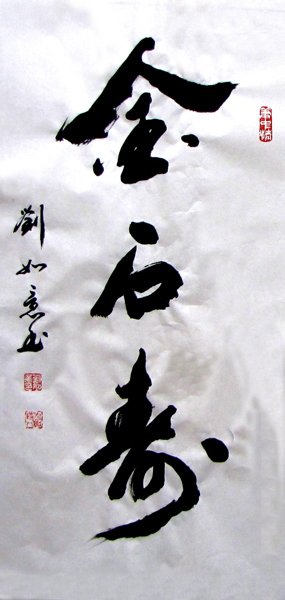 金石寿
劉如意书